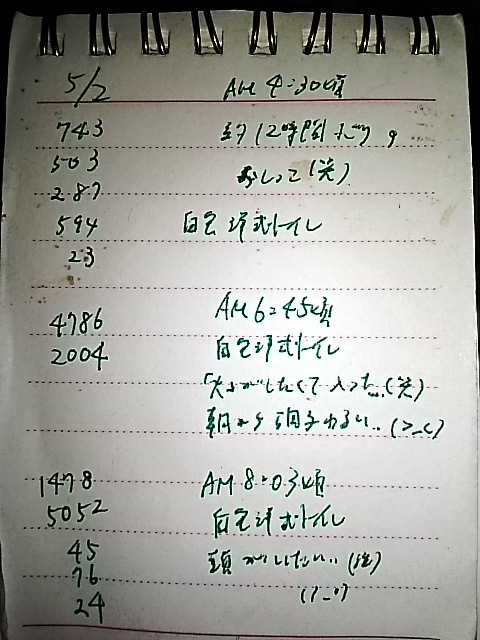 5/2 AM 4:30頃
743 約12時間
503 おしっこ(笑)
287
594 自宅洋式トイレ
23
4786 AM 6:45頃
2004 自宅洋式トイレ
大がしたくて入った...(笑)
朝から調子わるい..(>_<)
1478 AM 8:03頃
5052 自宅洋式トイレ
45 頭がいたい..
76
24